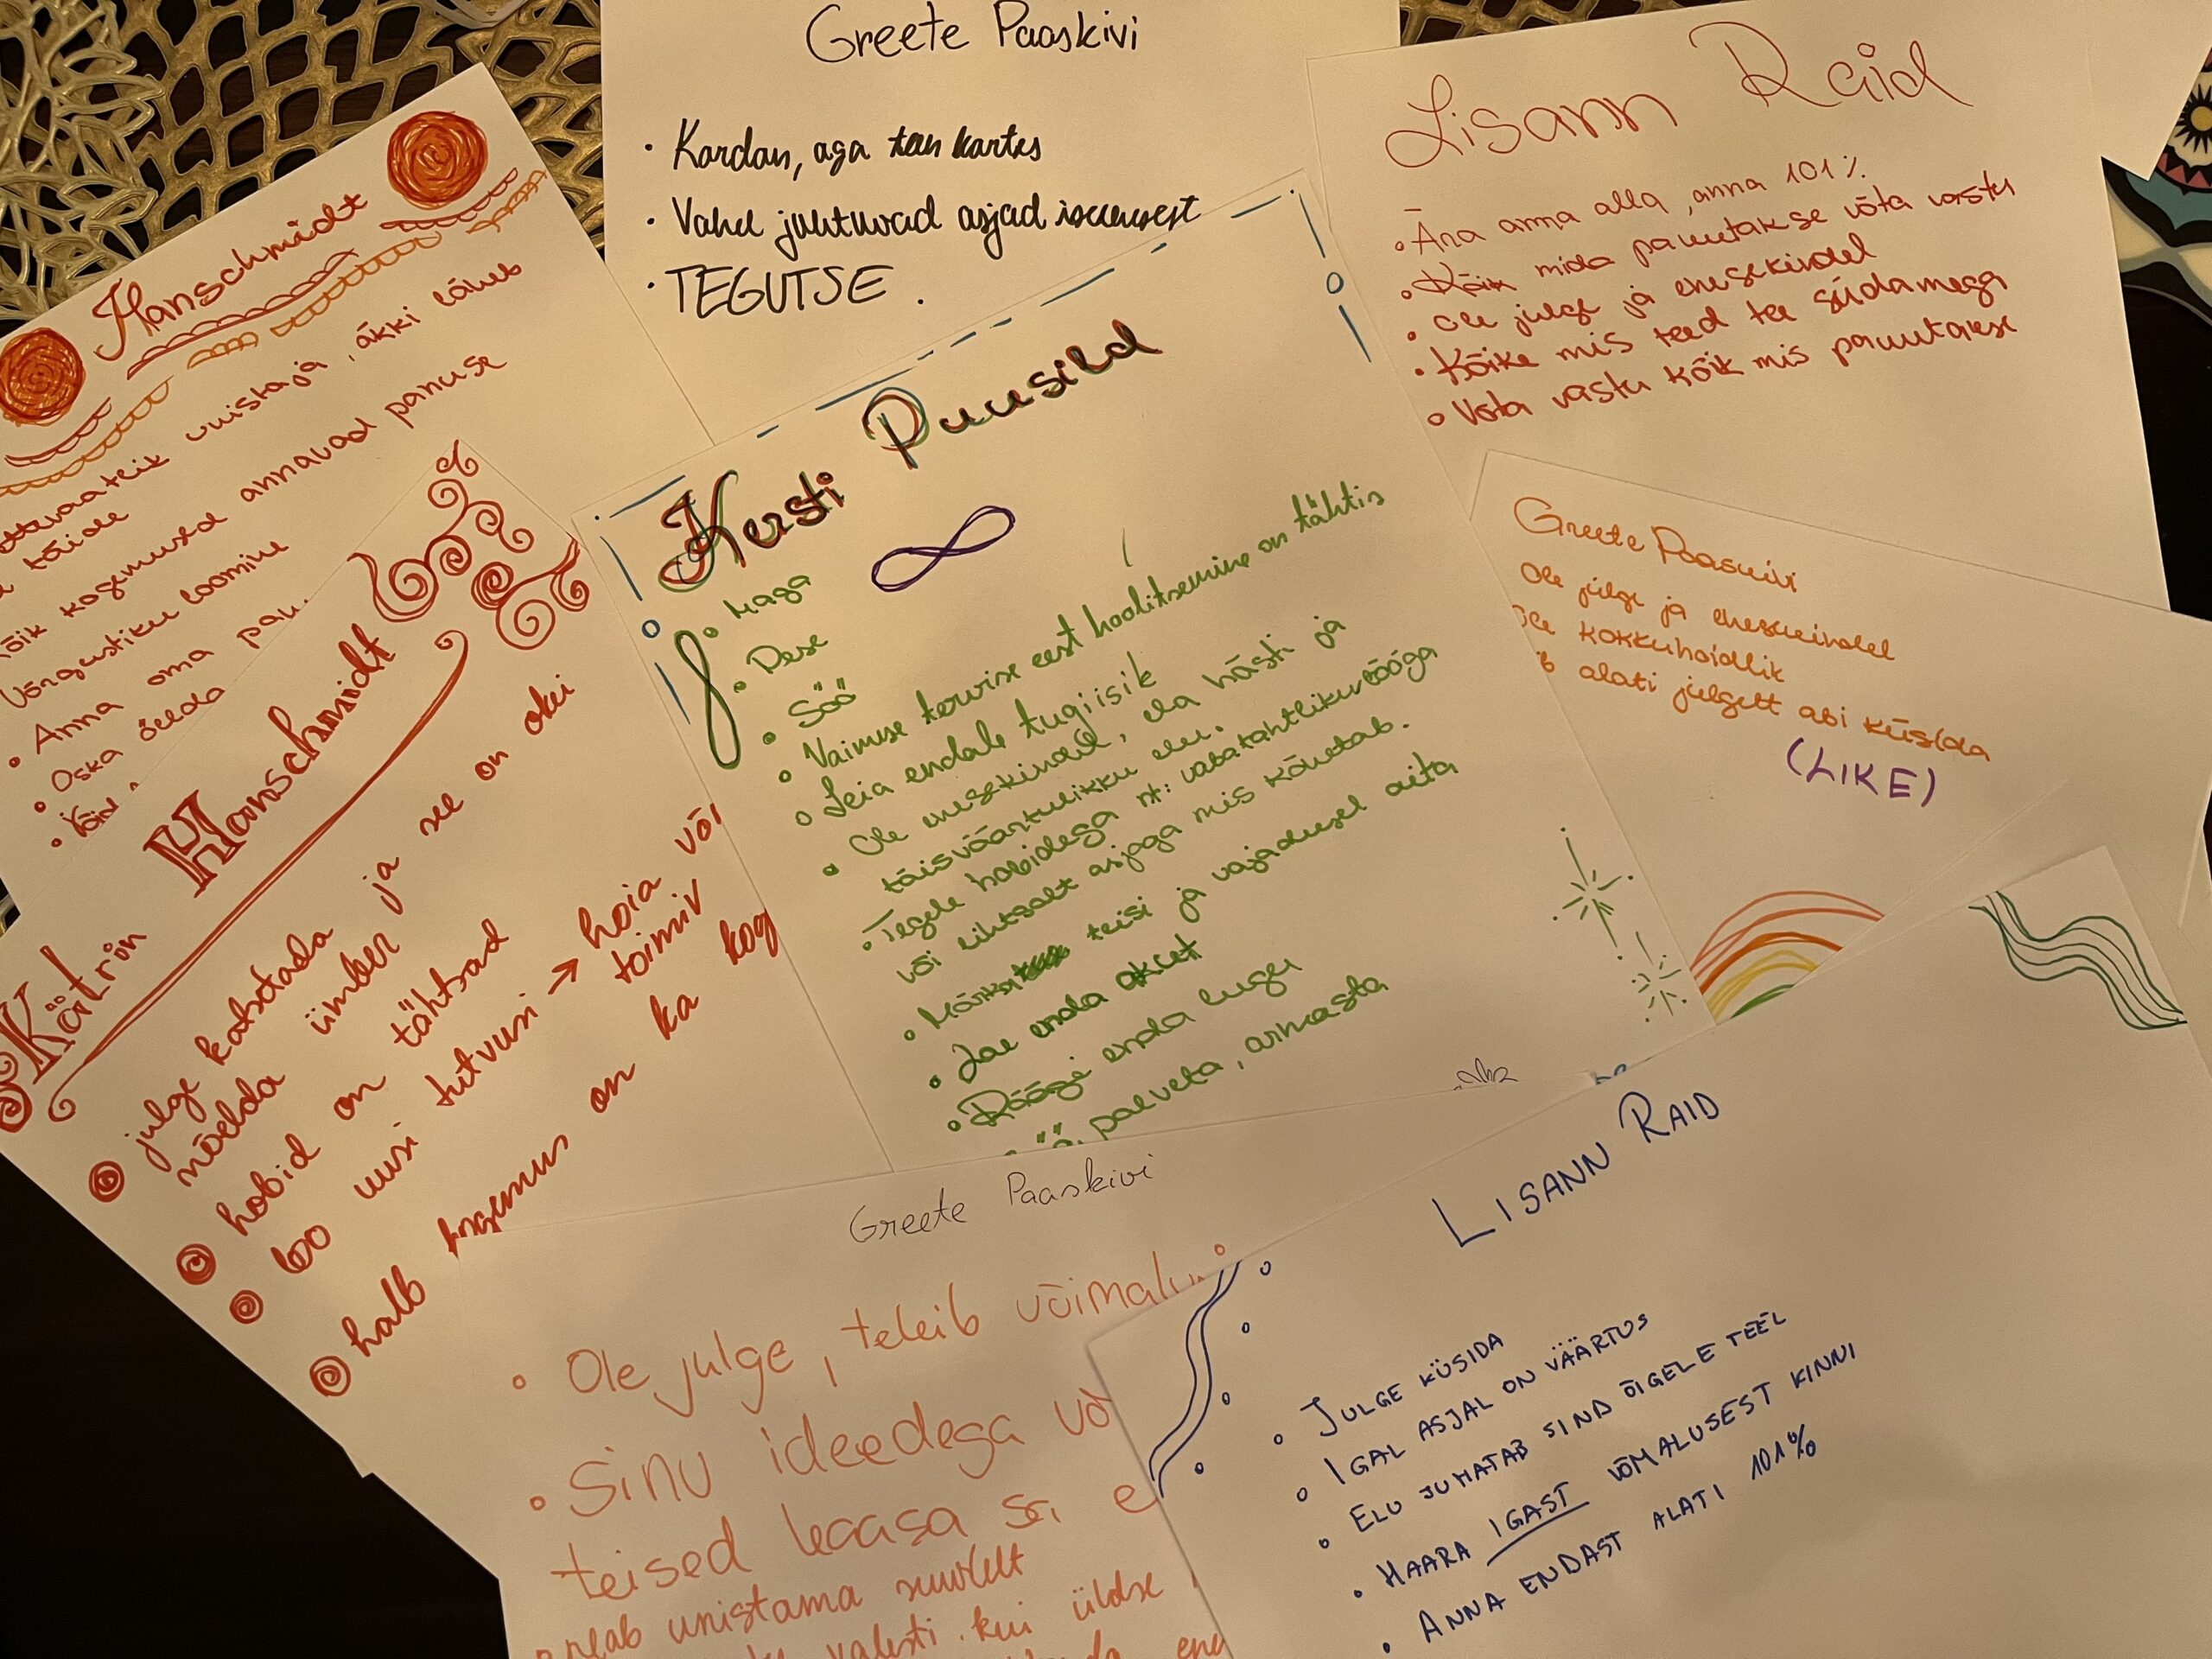 Greete Paaskivi
• Kardan, aga teen kartes
• Vahel juhtuvad asjad iseenesest
• TEGUTSE.
Lisann Raid
• Ära anna alla, anna 101%
• Kõik mida pakutakse võta vastu
• Ole julge ja enesekindel
• Kõike mis teed tee südamega
• Võta vastu kõik mis pakutakse
Hanschmidt
unistaja, äkki läheb
täide
kõik kogemused annavad panuse
Võrgustiku loomine
• Anna oma pan.
• Oska öelda
• Võid
Kätrin Hanschmidt
julge katsetada ja see on oki
mõelda ümber
hobid on tähtsad
loo uusi tutvusi → hoia või
toimiv
halb kogemus on ka kog
Kersti Puusild
• Maga
• Pese
• Söö
• Vaimse tervise eest hoolitsemine on tähtis
• Leia endale tugiisik
• Ole enesekindel, ela hästi ja
täisväärtuslikku elu.
• Tegele hobidega nt: vabatahtlikutööga
või lihtsalt asjaga mis kõnetab.
• Märka teisi ja vajadusel aita
• Lae enda akut
• Räägi enda lugu
palveta, armasta
Greete Paaskivi
Ole julge ja enesekindel
Ole kokkuhoidlik
alati julgelt abi küsida
(LIKE)
Greete Paaskivi
• Ole julge, tekib võimalu
• Sinu ideedega võ
teised kaasa sei e
• peab unistama suurelt
valesti. kui üldse
LISANN RAID
• JULGE KÜSIDA
• IGAL ASJAL ON VÄÄRTUS
• ELU JUHATAB SIND ÕIGELE TEEL
• HAARA IGAST VÕMALUSEST KINNI
• ANNA ENDAST ALATI 101%